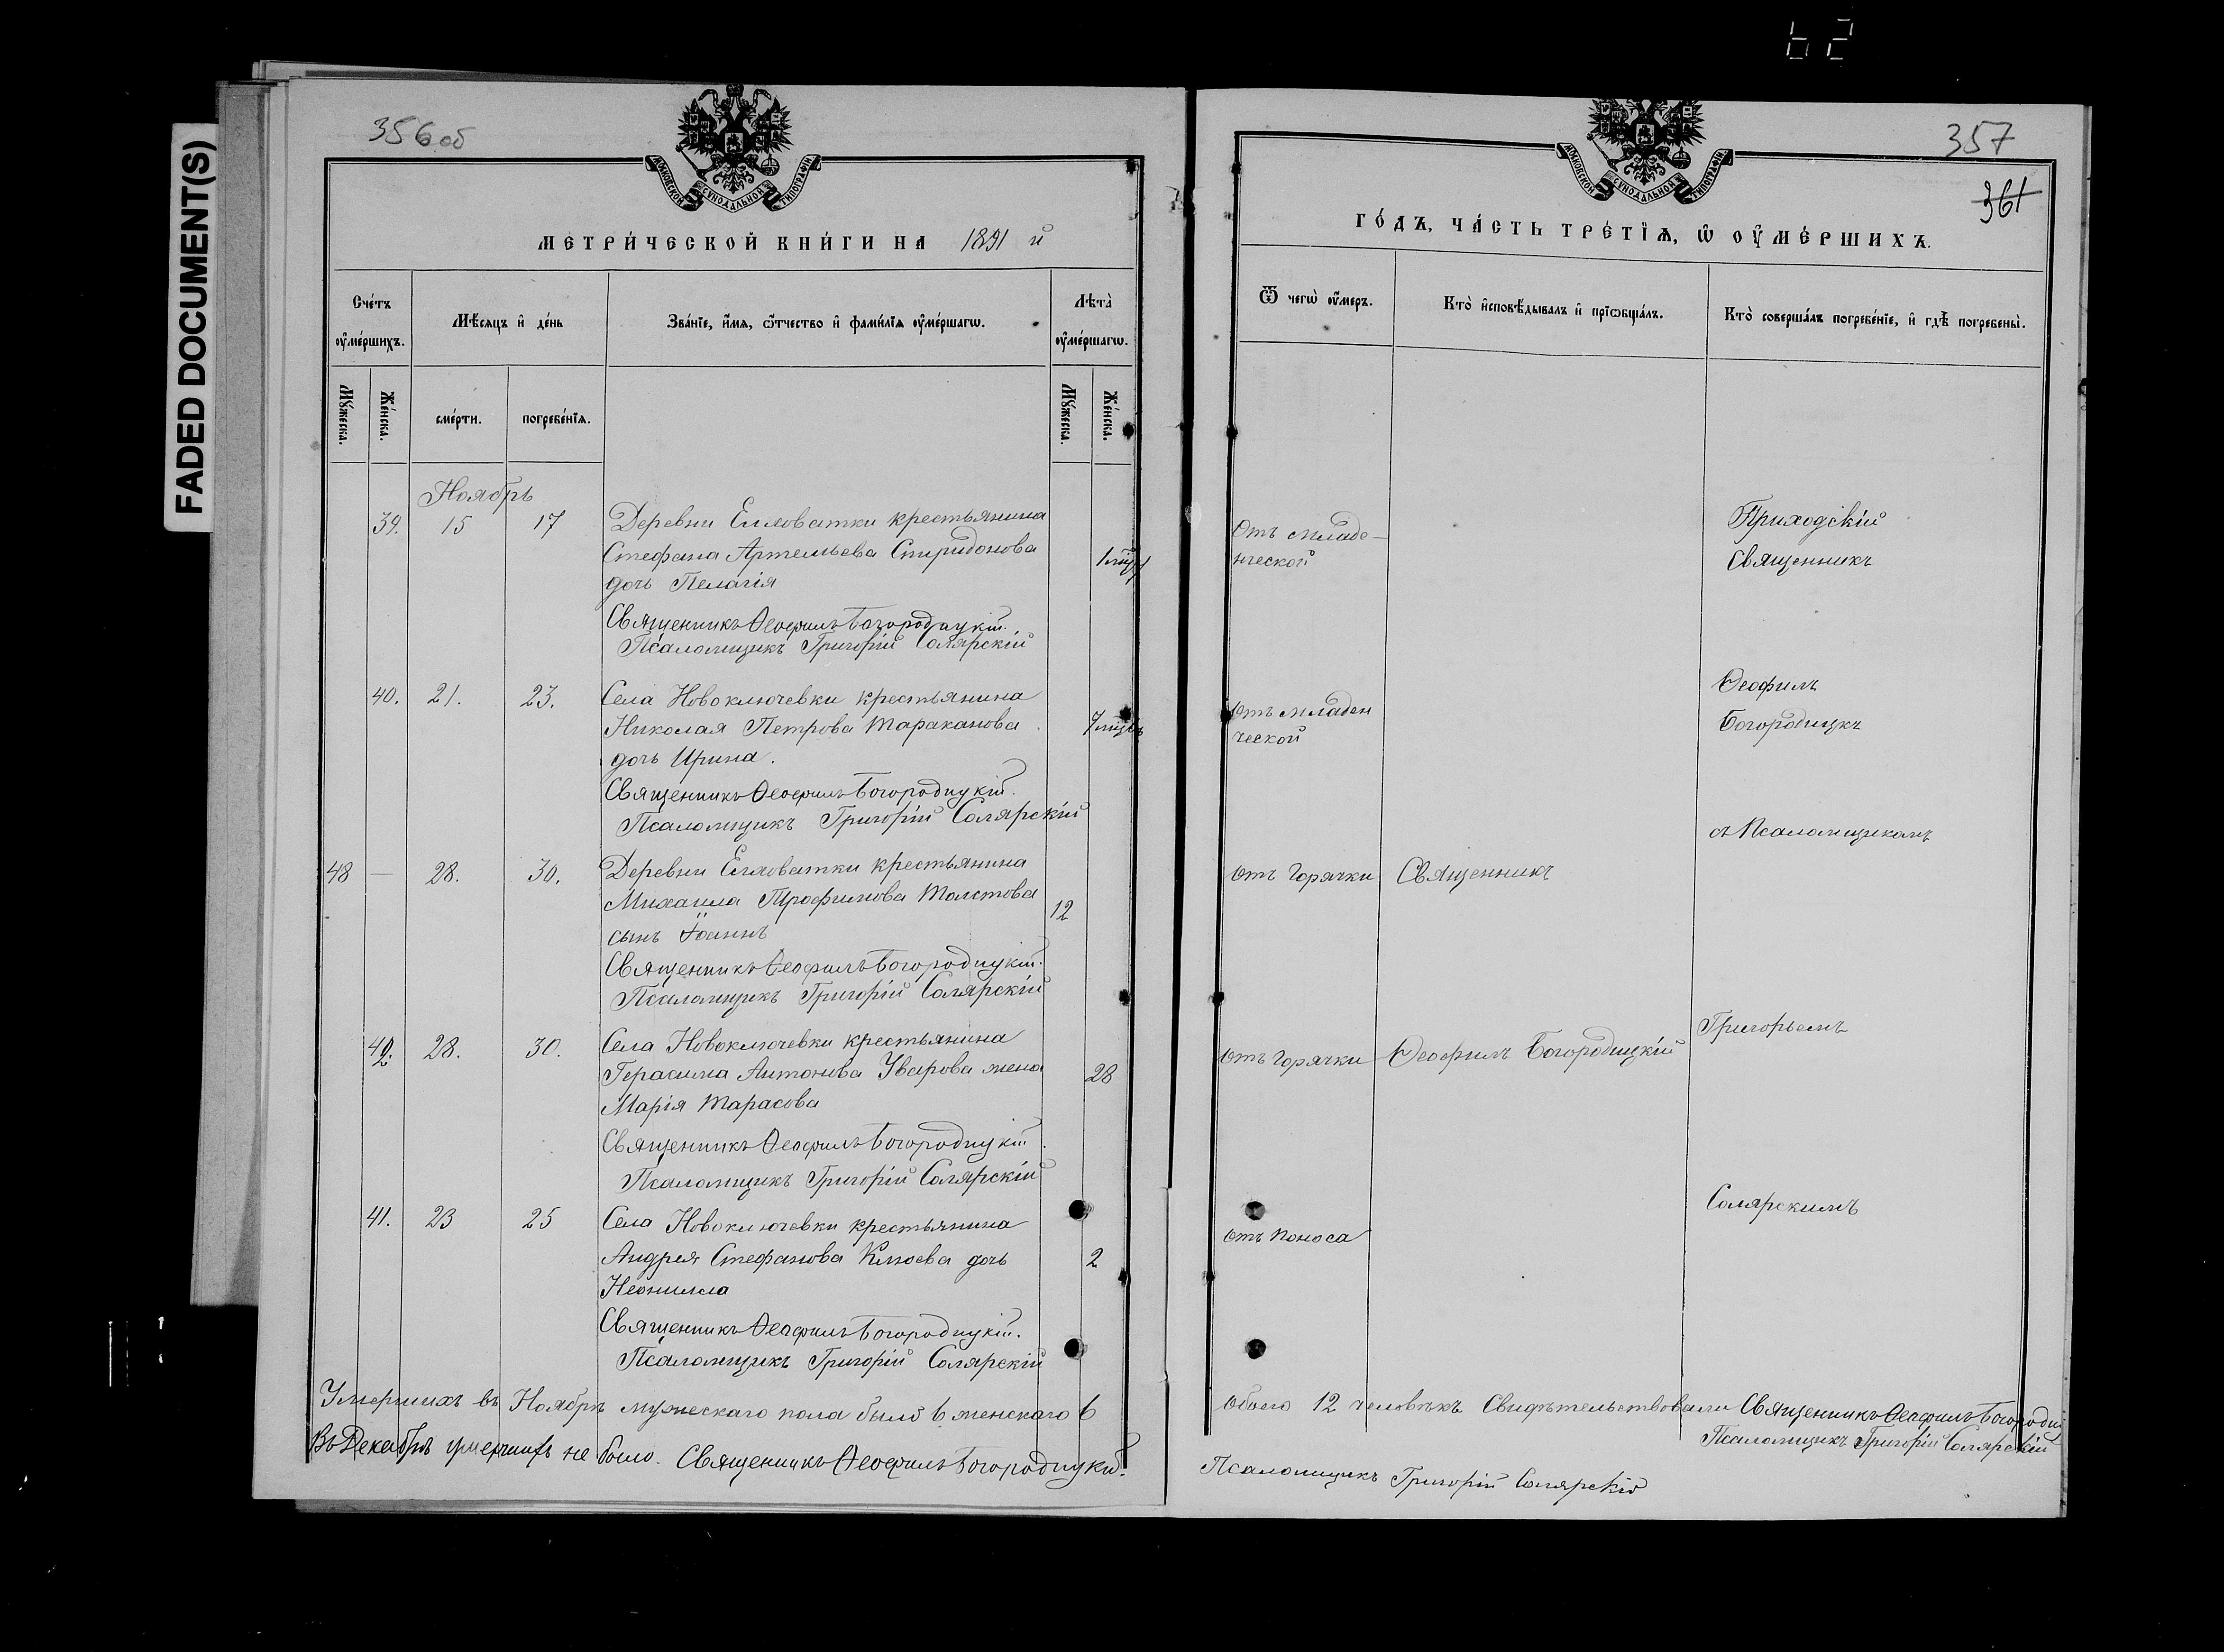 62
FADED DOCUMENT(S)
356 об
МОСКОВСКОЙ СѴНОДАЛЬНОЙ ТИПОГРАФІИ
МЕТРИ́ЧЕСКОЙ КНИ́ГИ НА 1891 й
Сче́тъ ᲂу҆ме́ршихъ.
Мѣ́сяцъ и҆ де́нь
Зва́нїе, и҆́мя, ѻ҆́тчество и҆ фами́лїя ᲂу҆ме́ршагѡ.
Лѣта̀ ᲂу҆ме́ршагѡ.
Мꙋ́жеска.
Же́нска.
сме́рти.
погребе́нїя.
Мꙋ́жеска.
Же́нска.
Ноябрь
39. 15 17 Деревни Елховатки крестьянина
Стефана Артемьева Спиридонова
дочь Пелагія
Священникъ Ѳеофилъ Богородицкій.
Псаломщикъ Григорій Солярскій
40. 21. 23. Села Новоключевки крестьянина
Николая Петрова Тараканова 7 мцвъ
дочь Ирина.
Священникъ Ѳеофилъ Богородицкій.
Псаломщикъ Григорій Солярскій
48 — 28. 30. Деревни Елховатки крестьянина
Михаила Трофимова Толстова 12
сынъ Іоаннъ
Священникъ Ѳеофилъ Богородицкій.
Псаломщикъ Григорій Солярскій
42. 28. 30. Села Новоключевки крестьянина
Герасима Антонова Уварова жена 28
Марія Тарасова
Священникъ Ѳеофилъ Богородицкій.
Псаломщикъ Григорій Солярскій
41. 23 25 Села Новоключевки крестьянина
Андрея Стефанова Клюева дочь 2
Неонилла
Священникъ Ѳеофилъ Богородицкій.
Псаломщикъ Григорій Солярскій
Умершихъ въ Ноябрѣ мужескаго пола было 6 женскаго 6
Въ Декабрѣ умершихъ не было. Священникъ Ѳеофилъ Богородицкій.
357
361
МОСКОВСКОЙ СѴНОДАЛЬНОЙ ТИПОГРАФІИ
ГО́ДЪ, ЧА́СТЬ ТРЕ́ТЇѦ, Ѽ ОУ҆МЕ́РШИХЪ.
Ѿ чегѡ̀ ᲂу҆́меръ.
Кто̀ и҆сповѣ́дывалъ и҆ прїѻбща́лъ.
Кто̀ соверша́лъ погребе́нїе, и҆ гдѣ̀ погребены̀.
Отъ младе-
нческой
Приходскій
Священникъ
Отъ младен
ческой
Ѳеофилъ
Богородицкъ
съ Псаломщикомъ
Отъ горячки Священникъ
Григорьемъ
Отъ горячки Ѳеофилъ Богородицкій
Солярскимъ
Отъ поноса
Обоего 12 человѣкъ Свидѣтельствовали Священникъ Ѳеофилъ Богородиц
Псаломщикъ Григорій Солярскій
Псаломщикъ Григорій Солярскій